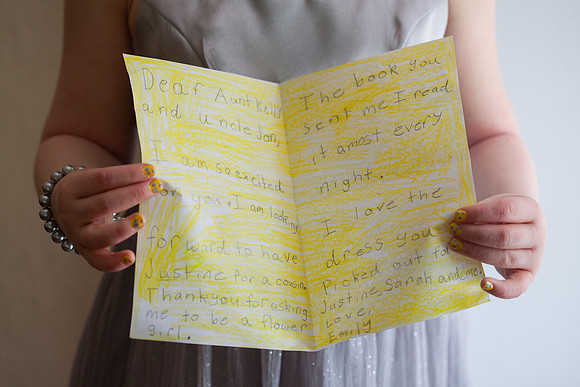 Dear Aunt Kelly
and Uncle Jon,
I am so excited
for you. I am looking
forward to have
Justine for a cousin.
Thankyou for asking
me to be a flower
girl.
The book you
sent me I read
it amost every
night.
I love the
dress you
Picked out for
Justine, Sarah and me.
Love,
Emily